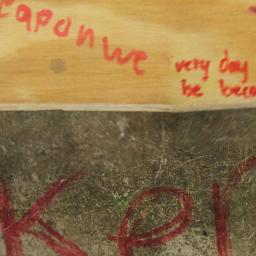 eapon we
very day
be beca
Ker